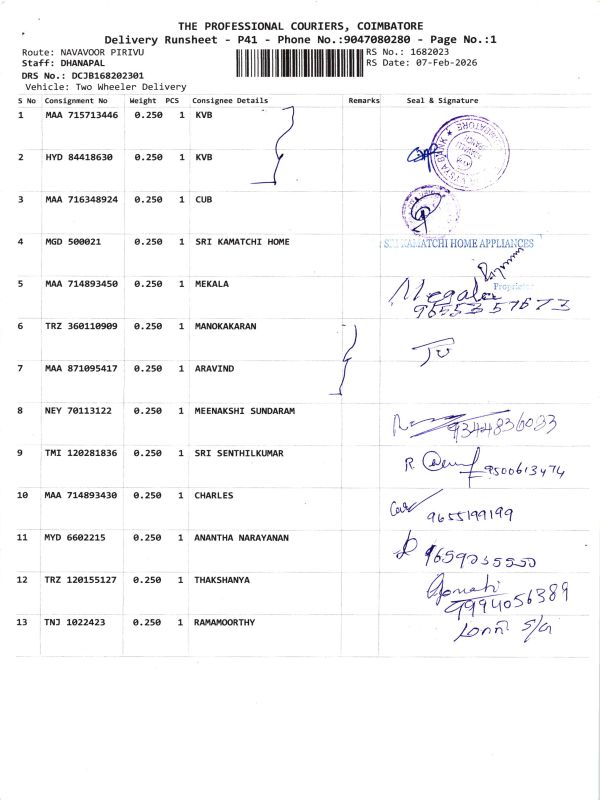 THE PROFESSIONAL COURIERS, COIMBATORE
Delivery Runsheet - P41 - Phone No.:9047080280 - Page No.:1
Route: NAVAVOOR PIRIVU RS No.: 1682023
Staff: DHANAPAL RS Date: 07-Feb-2026
DRS No.: DCJB168202301
Vehicle: Two Wheeler Delivery
S No Consignment No Weight PCS Consignee Details Remarks Seal & Signature
1 MAA 715713446 0.250 1 KVB
2 HYD 84418630 0.250 1 KVB
3 MAA 716348924 0.250 1 CUB
4 MGD 500021 0.250 1 SRI KAMATCHI HOME SRI KAMATCHI HOME APPLIANCES
Proprietor
5 MAA 714893450 0.250 1 MEKALA Megala
9655357673
6 TRZ 360110909 0.250 1 MANOKAKARAN
7 MAA 871095417 0.250 1 ARAVIND
8 NEY 70113122 0.250 1 MEENAKSHI SUNDARAM 9344836033
9 TMI 120281836 0.250 1 SRI SENTHILKUMAR R. 9500613474
10 MAA 714893430 0.250 1 CHARLES 9655199199
11 MYD 6602215 0.250 1 ANANTHA NARAYANAN
12 TRZ 120155127 0.250 1 THAKSHANYA Gomati
9994056389
13 TNJ 1022423 0.250 1 RAMAMOORTHY